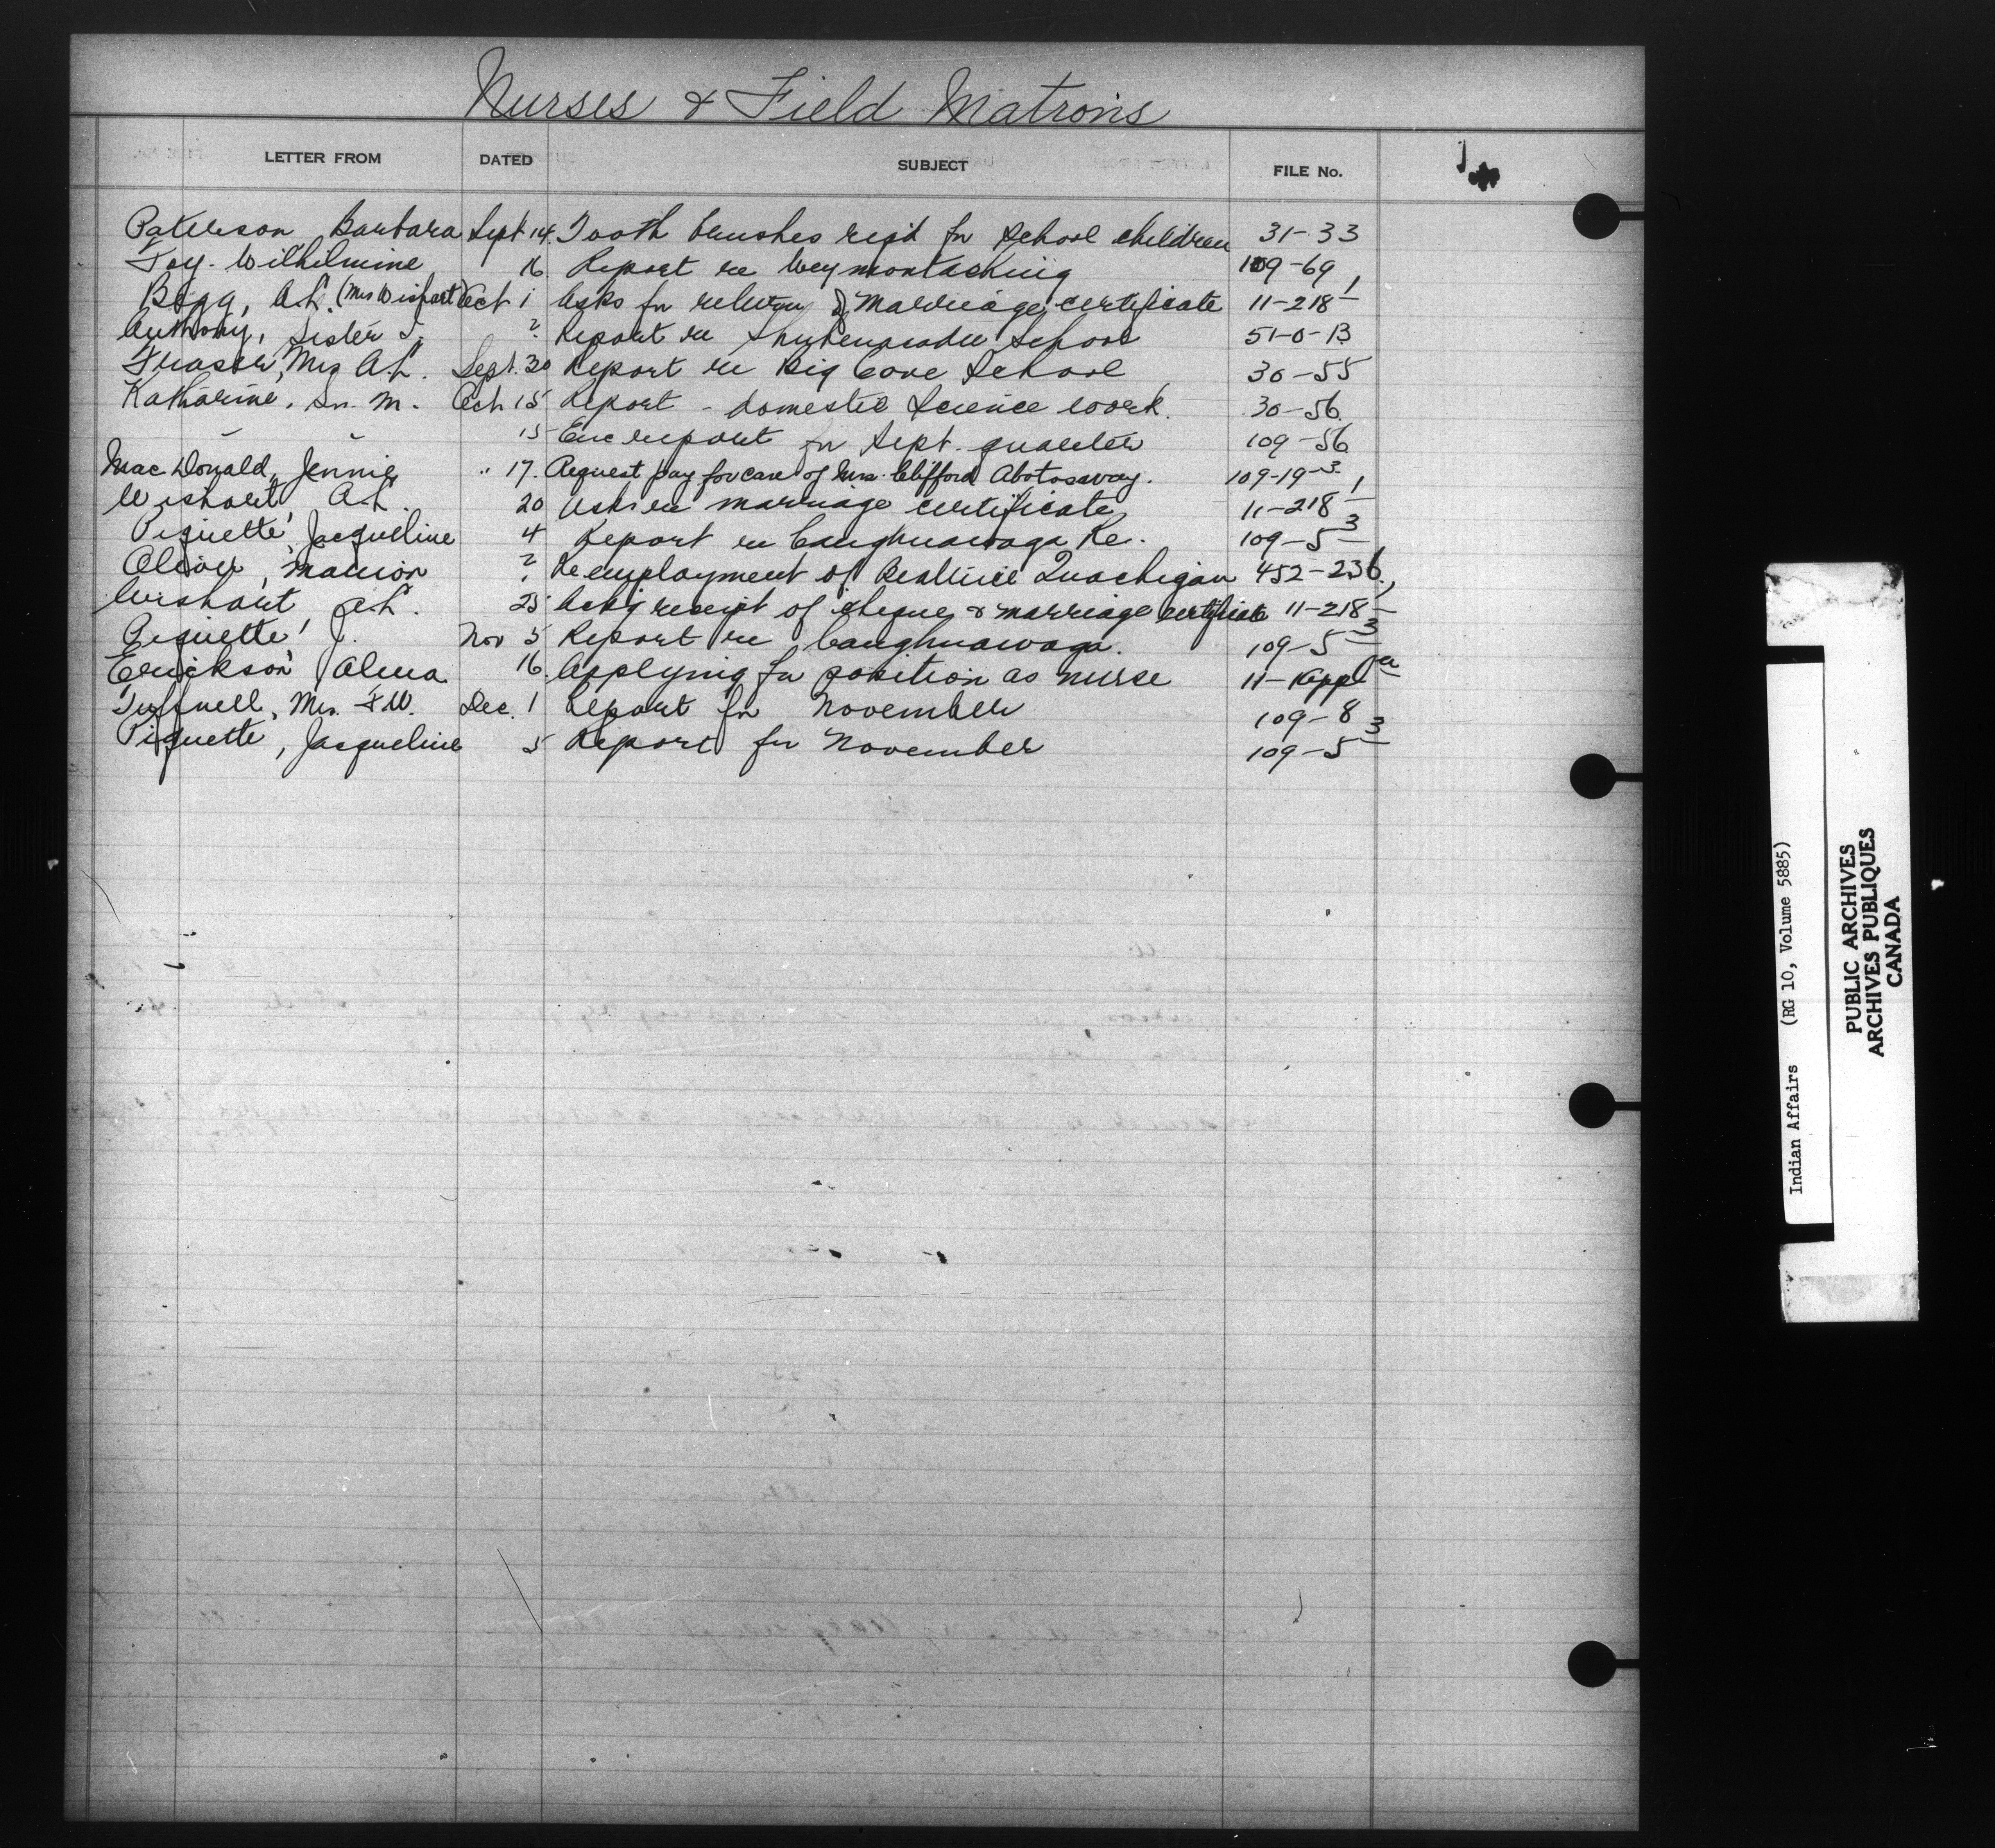 Nurses & Field Matrons
LETTER FROM DATED SUBJECT FILE No.
Paterson Barbara Sept 14. Tooth brushes reqd for School children 31-33
Foy. Wilhilmine 16. Report re Weymontaching 109-69
Begg, A.L. (Mrs Wishart) Oct 1 Asks for return of marriage certificate 11-218-1
Anthony, Sister T. 2 Report re Shubenacadie School 51-0-13
Fraser, Mrs A.L. Sept. 30 Report re Big Cove School 30-55
Katharine, Sr. M. Oct 15 Report - domestic Science work. 30-56
" " 15 Enc report for Sept. quarter 109-56
MacDonald, Jennie " 17. Request pay for care of Mrs. Clifford Abotossway. 109-19-3
Wishart, A.L. 20 Asks re marriage certificate 11-218-1
Piquette, Jacqueline 4 Report re Caughnawaga Re. 109-5-3
Oliver, Marion ? Re employment of Beatrice Quachegan 452-236
Wishart, A.L. 25 Ackg receipt of cheque & marriage certificate 11-218-1
Piquette, J. Nov 5 Report re Caughnawaga. 109-5-3
Erickson, Alma 16. Applying for position as nurse 11-1 App
Tuffnell, Mrs. F.W. Dec. 1 Report for November 109-8
Piquette, Jacqueline 5 Report for November 109-5-3
Indian Affairs (RG 10, Volume 5885)
PUBLIC ARCHIVES
ARCHIVES PUBLIQUES
CANADA